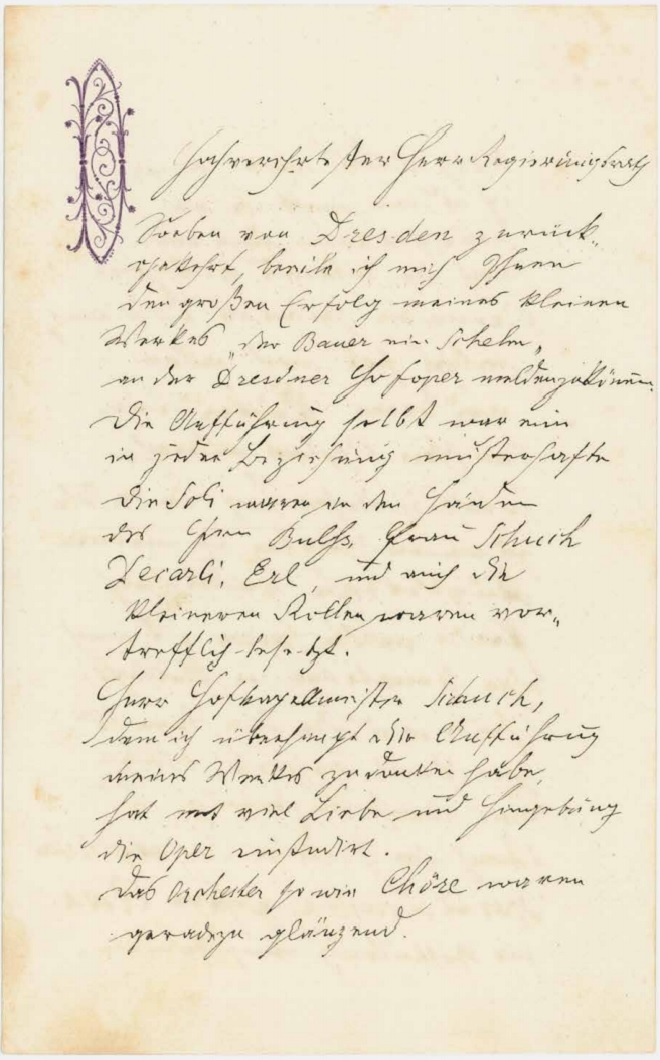 Hochverehrtester Herr Regierungsrath
Soeben von Dresden zurück-
gekehrt, beeile ich mich Ihnen
den großen Erfolg meines kleinen
Werkes „der Bauer ein Schelm„
an der Dresdner Hofoper melden zu können.
Die Aufführung selbst war eine
in jeder Beziehung musterhafte
Die Soli waren in den Händen
des Hrn Bulß, Frau Schuch
Decarli, Erl, und auch die
kleineren Rollen waren vor-
trefflich besetzt.
Herr Hofkapellmeister Schuch,
dem ich überhaupt die Aufführung
meines Werkes zu danken habe,
hat mit viel Liebe und Hingebung
die Oper einstudirt.
Das Orchester sowie Chöre waren
geradezu glänzend.